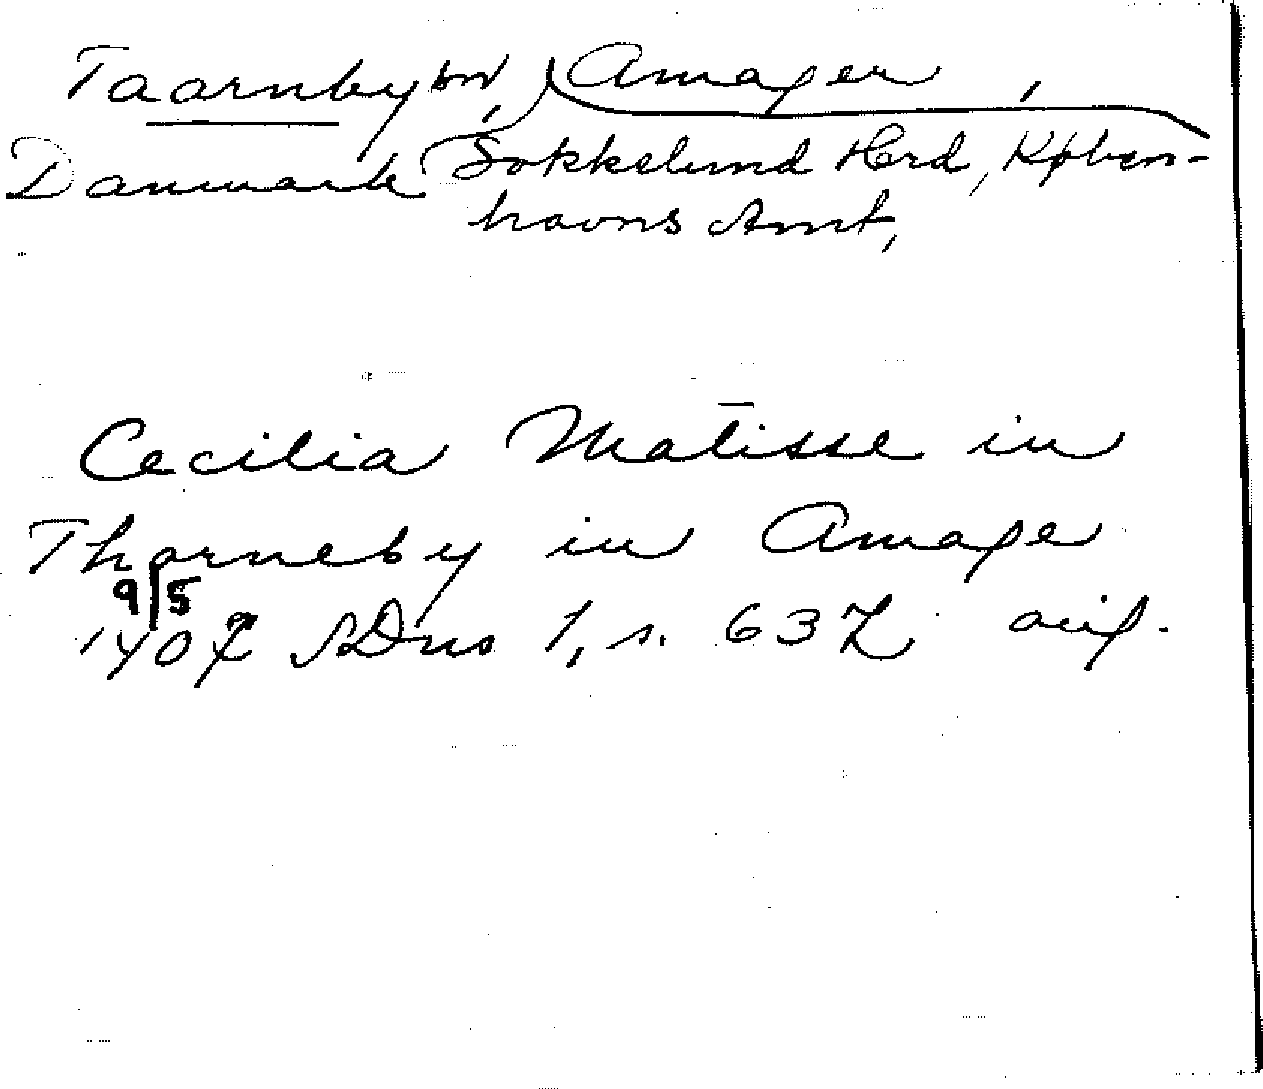 Taarnby sn, Amager,
Danmark Sokkelund Hrd, Køben-
havns Amt,
Cecilia Matisse in
Thorneby in Amage
9/5
1407 SDns 1, s. 637 orig.